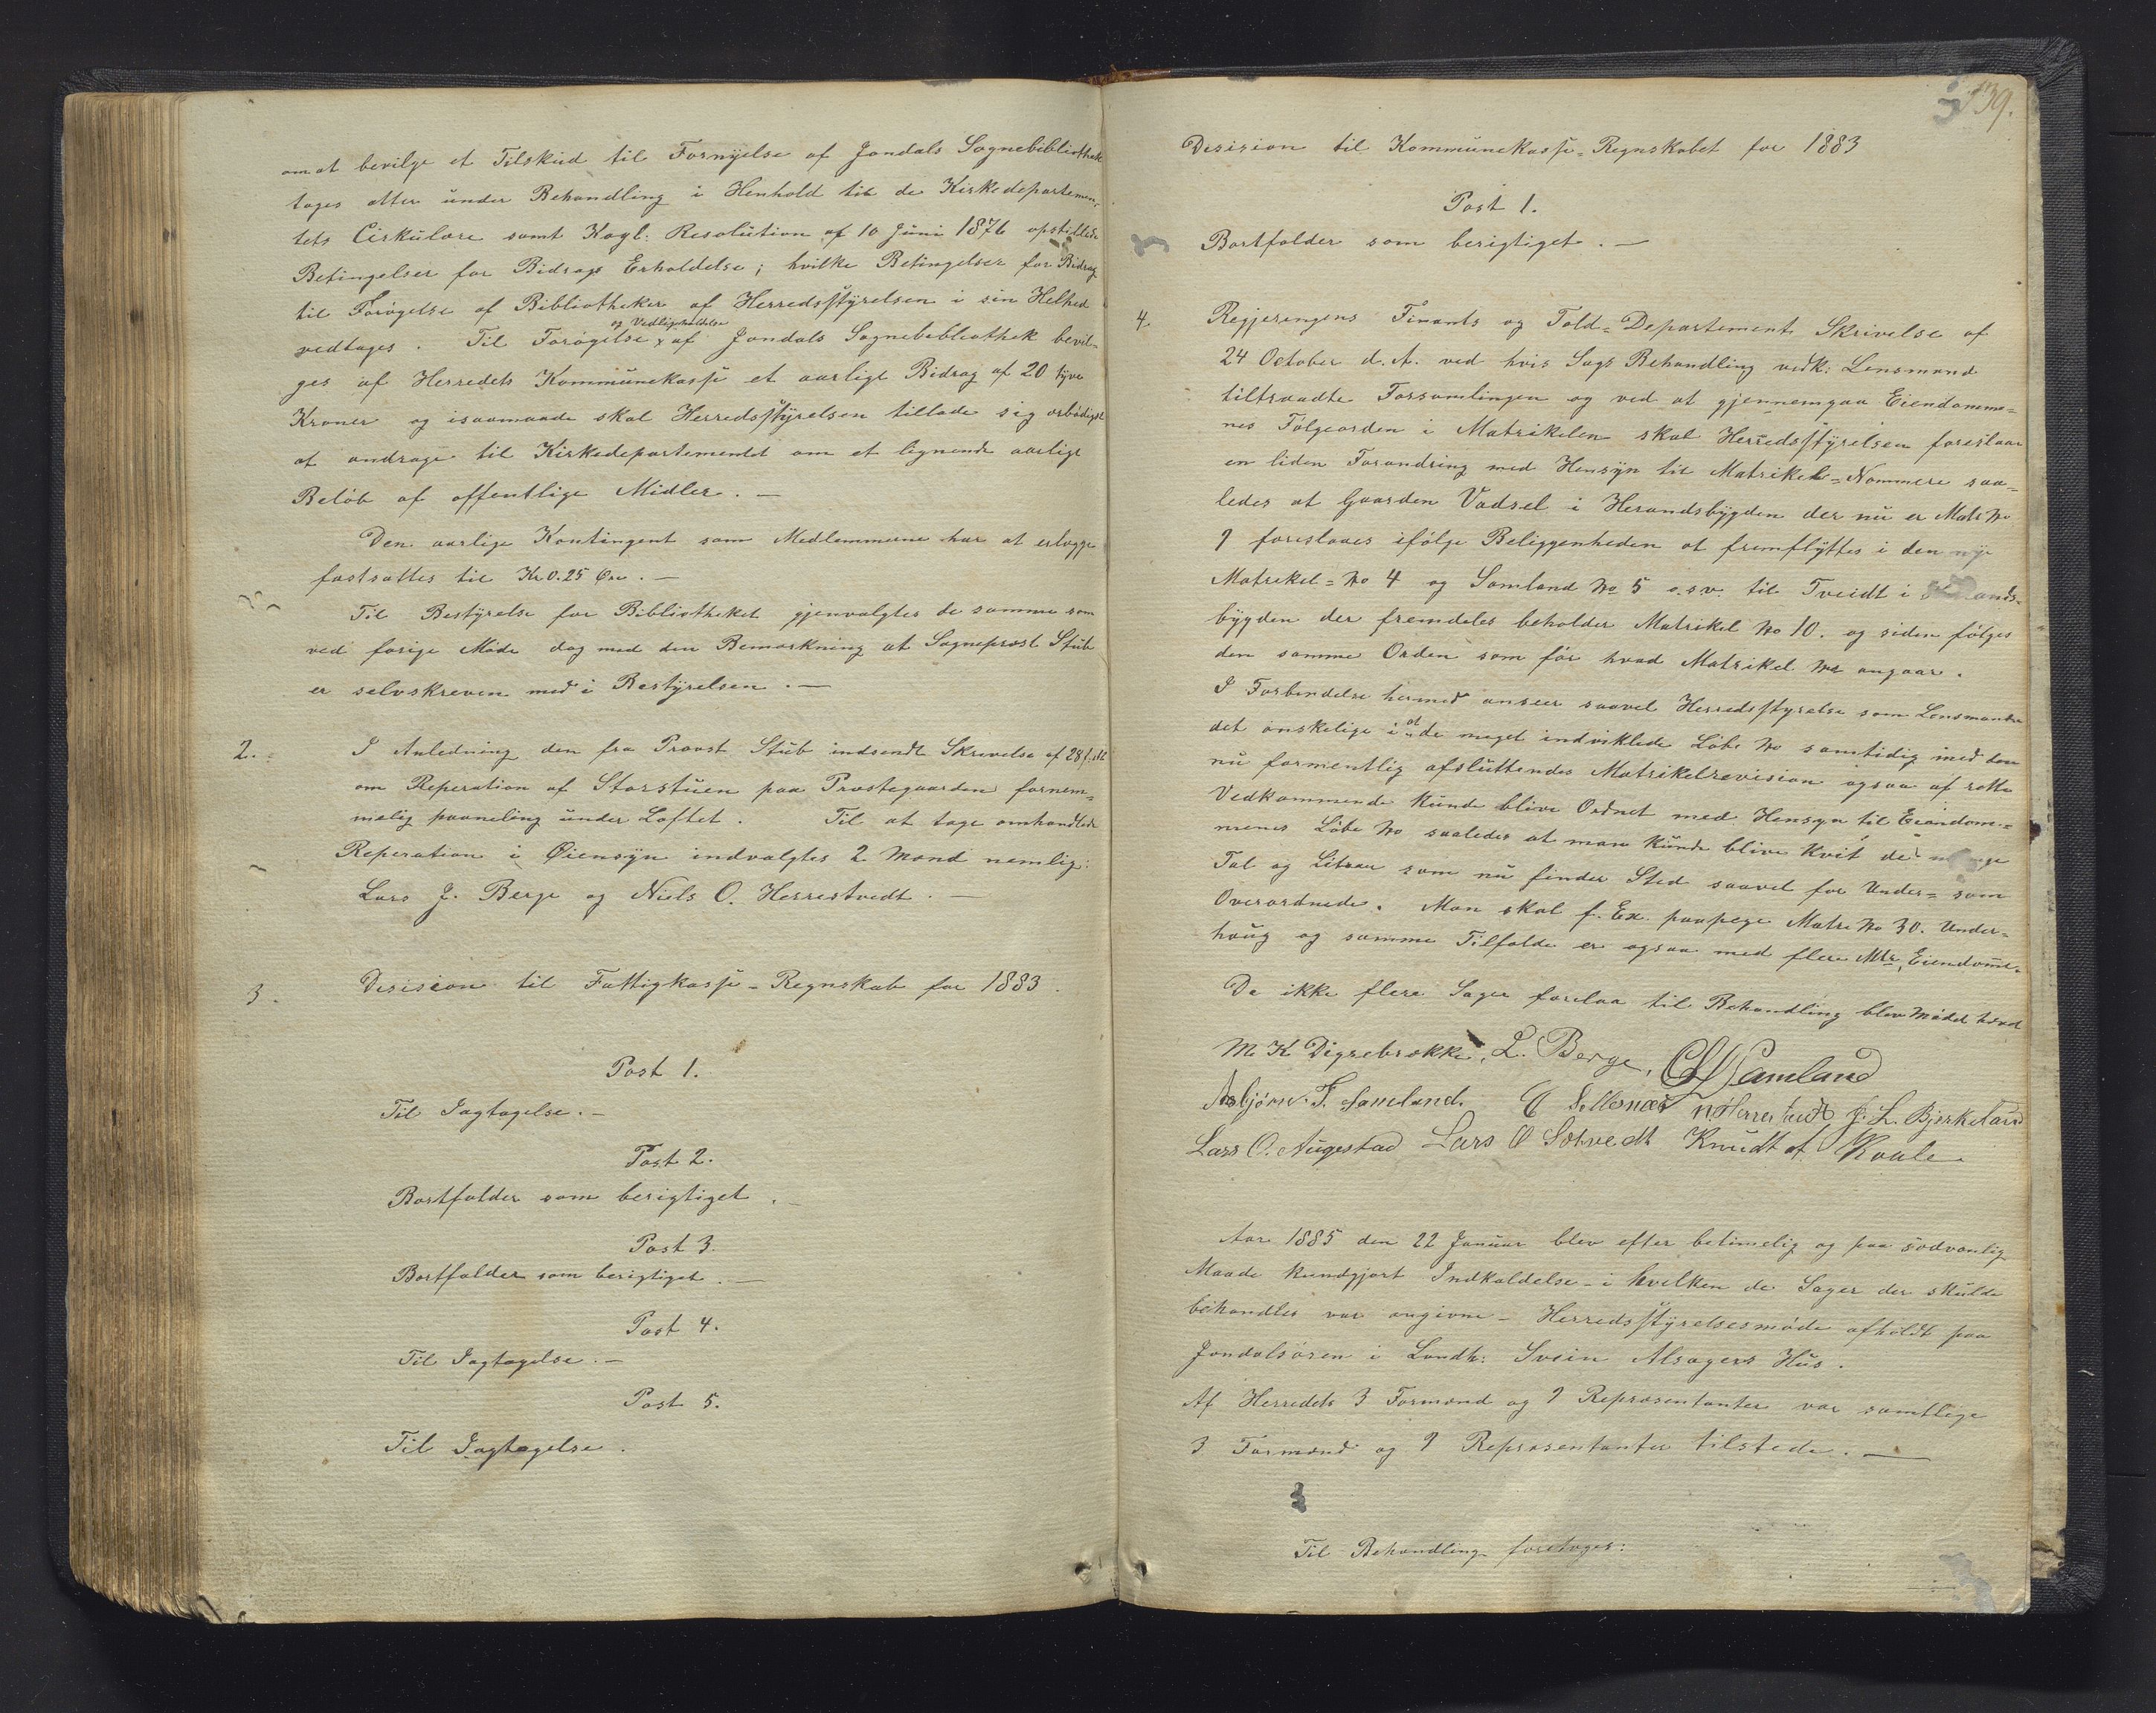 om at bevilge et Tilskud til Fornyelse af Jondals Sognebibliothek
tages atter under Behandling i Henhold til de Kirkedepartemen-
tets Cirkulære samt Kngl. Resolution af 10 Juni 1876 opstillede
Betingelser for Bidrags Erholdelse; hvilke Betingelser for Bidrag
til Forøgelse af Bibliotheker af Herredsstyrelsen i sin Helhed
vedtages. Til Forøgelse og Vedligeholdelse af Jondals Sognebibliothek bevil-
ges af Herredets Kommunekasse et aarligt Bidrag af 20 tyve
Kroner og isaamaade skal Herredsstyrelsen tillade sig ærbødigst
at andrage til Kirkedepartementet om et lignende aarligt
Beløb af offentlige Midler. —
Den aarlige Kontingent som Medlemmerne har at erlægge
fastsættes til Kr 0.25 Øre. —
Til Bestyrelse for Bibliotheket gjenvalgtes de samme som
ved forige Møde dog med den Bemærkning at Sogneprest Stub
er selvskreven med i Bestyrelsen. —
2. I Anledning den fra Provst Stub indsendt Skrivelse af 28
om Reperation af Storstuen paa Præstegaarden fornem-
melig paaneling under Loftet. Til at tage omhandlede
Reperation i Øiensyn indvalgtes 2 Mænd nemlig:
Lars J. Berge og Niels O. Herrestvedt. —
3. Desision til Fattigkasse-Regnskab for 1883.
Post 1.
Til Iagtagelse. —
Post 2.
Bortfalder som berigtiget. —
Post 3.
Bortfalder som berigtiget. —
Post 4.
Til Iagtagelse. —
Post 5.
Til Iagtagelse.
139.
Desision til Kommunekasse-Regnskabet for 1883
Post 1.
Bortfalder som berigtiget. —
4. Regjeringens Finants og Told-Departements Skrivelse af
24 October d. A. ved hvis Sags Behandling vedk: Lensmand
tiltraadte Forsamlingen og ved at gjennemgaa Eiendomme-
nes Følgeorden i Matrikelen skal Herredsstyrelsen foreslaar
en liden Forandring med Hensyn til Matrikel-Nommere saa-
ledes at Gaarden Vadsel i Herandsbygden der nu er Matr No
9 foreslaaes ifølge Beliggenheden at fremflyttes i den nye
Matrikel-No 4 og Samland No 5 o.s.v. til Tveidt i Herands-
bygden der fremdeles beholder Matrikel No 10. og siden følges
den samme Orden som før hvad Matrikel No angaar.
I Forbindelse hermed anseer saavel Herredsstyrelse som Lensmanden
det ønskelige i at de meget indviklede Løbe No samtidig med den
nu formentlig afsluttendes Matrikelrevision ogsaa af rette
Vedkommende kunde blive Ordnet med Hensyn til Eiendom-
menes Løbe No saaledes at man kunde blive Kvit de mange
Tal og Litraer som nu finder Sted saavel for Under- som
Overordnede. Man skal f. Ex. paapege Matr No 30. Under-
haug og samme Tilfælde er ogsaa med flere Mtr. Eiendomme.
Da ikke flere Sager forelaa til Behandling blev Mødet hævet
M K Digrebrække, L. Berge, Samland
Asbjørn T. Samland. O Sollesnæs N Herrestvedt J. L. Bjerkeland
Lars O. Augestad Lars O Solvedt Knudt Kvale
Aar 1885 den 22 Januar blev efter betimelig og paa sedvanlig
Maade kundgjort Indkaldelse - i hvilken de Sager der skulde
behandles var angivne - Herredsstyrelsesmøde afholdt paa
Jondalsøren i Landh: Svein Alsagers Hus.
Af Herredets 3 Formænd og 9 Repræsentanter var samtlige
3 Formænd og 9 Repræsentanter tilstede. —
Til Behandling foretages: